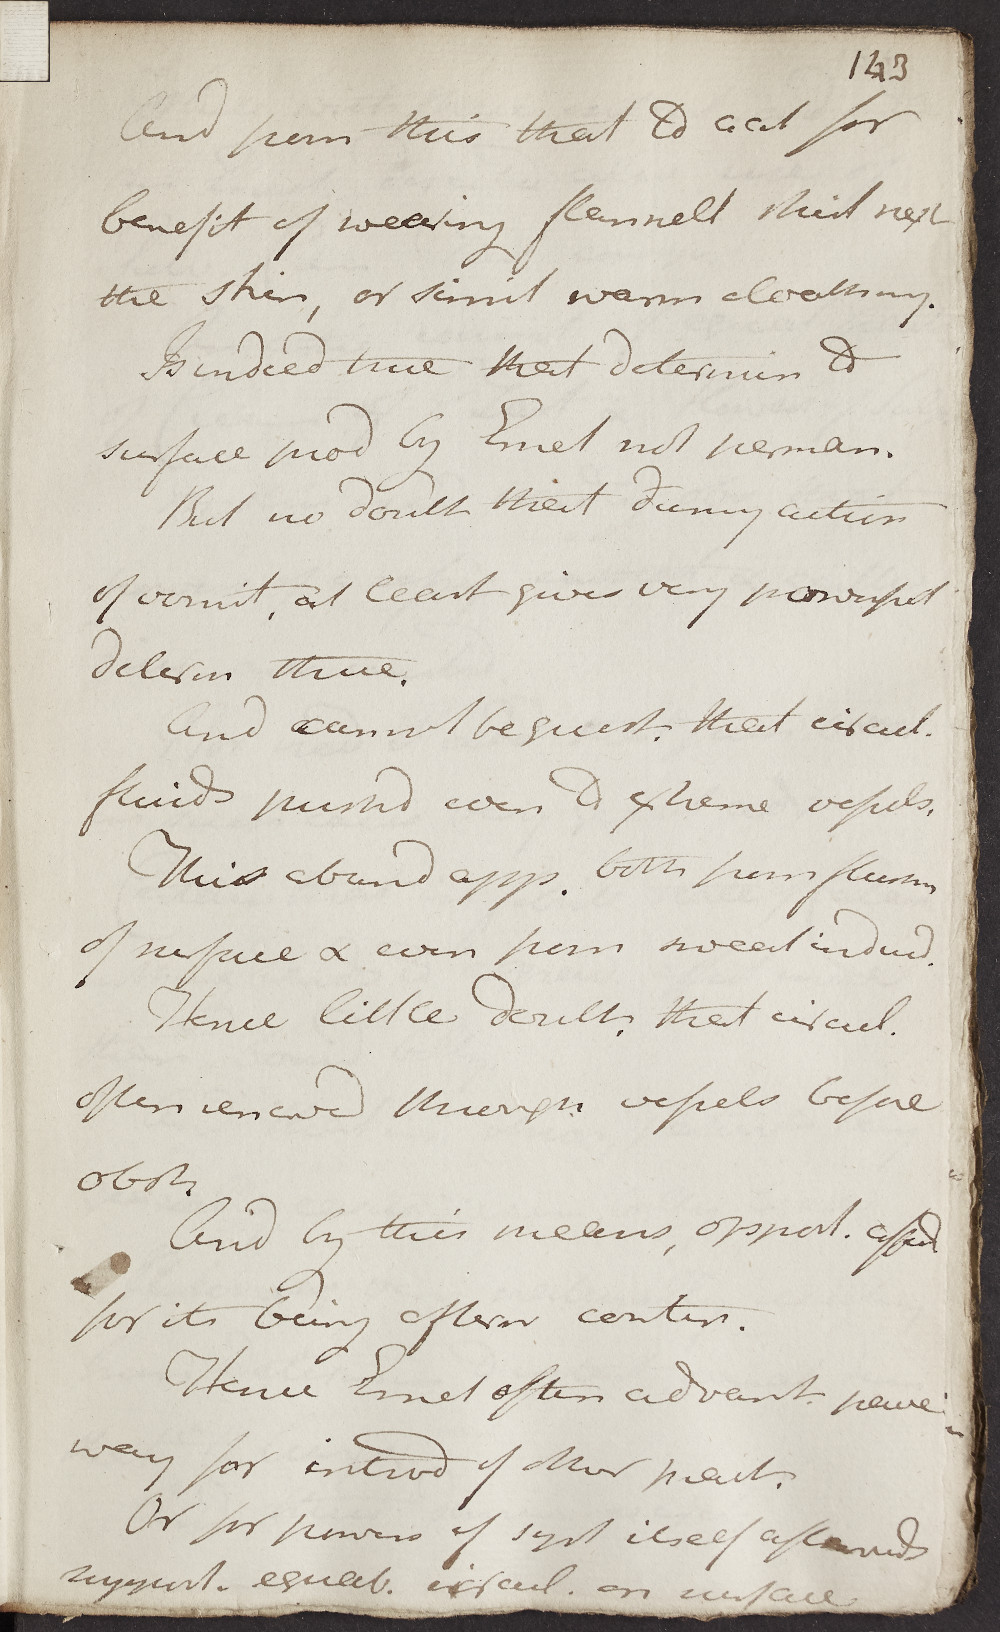 143
And from this that to act for
benefit of wearing flannell shirt next
the skin, or simil warm cloathing.
Is indeed true that determin to
surface prod by Emet not perman.
But no doubt that during action
of vomit, at least gives very powerful
determ there.
And cannot be quest. that circul.
fluids pushd even to extreme vessels.
This abund app. both from flushing
of surface & even from sweat inducd.
Hence little doubt, that circul.
often renewd through vessels before
obst.
And by this means, opport. affd
for its being aftern contin.
Hence Emet often advant. pave
way for introd of other pract.
Or for powers of syst itself afterwards
support. equab. circul. on surface